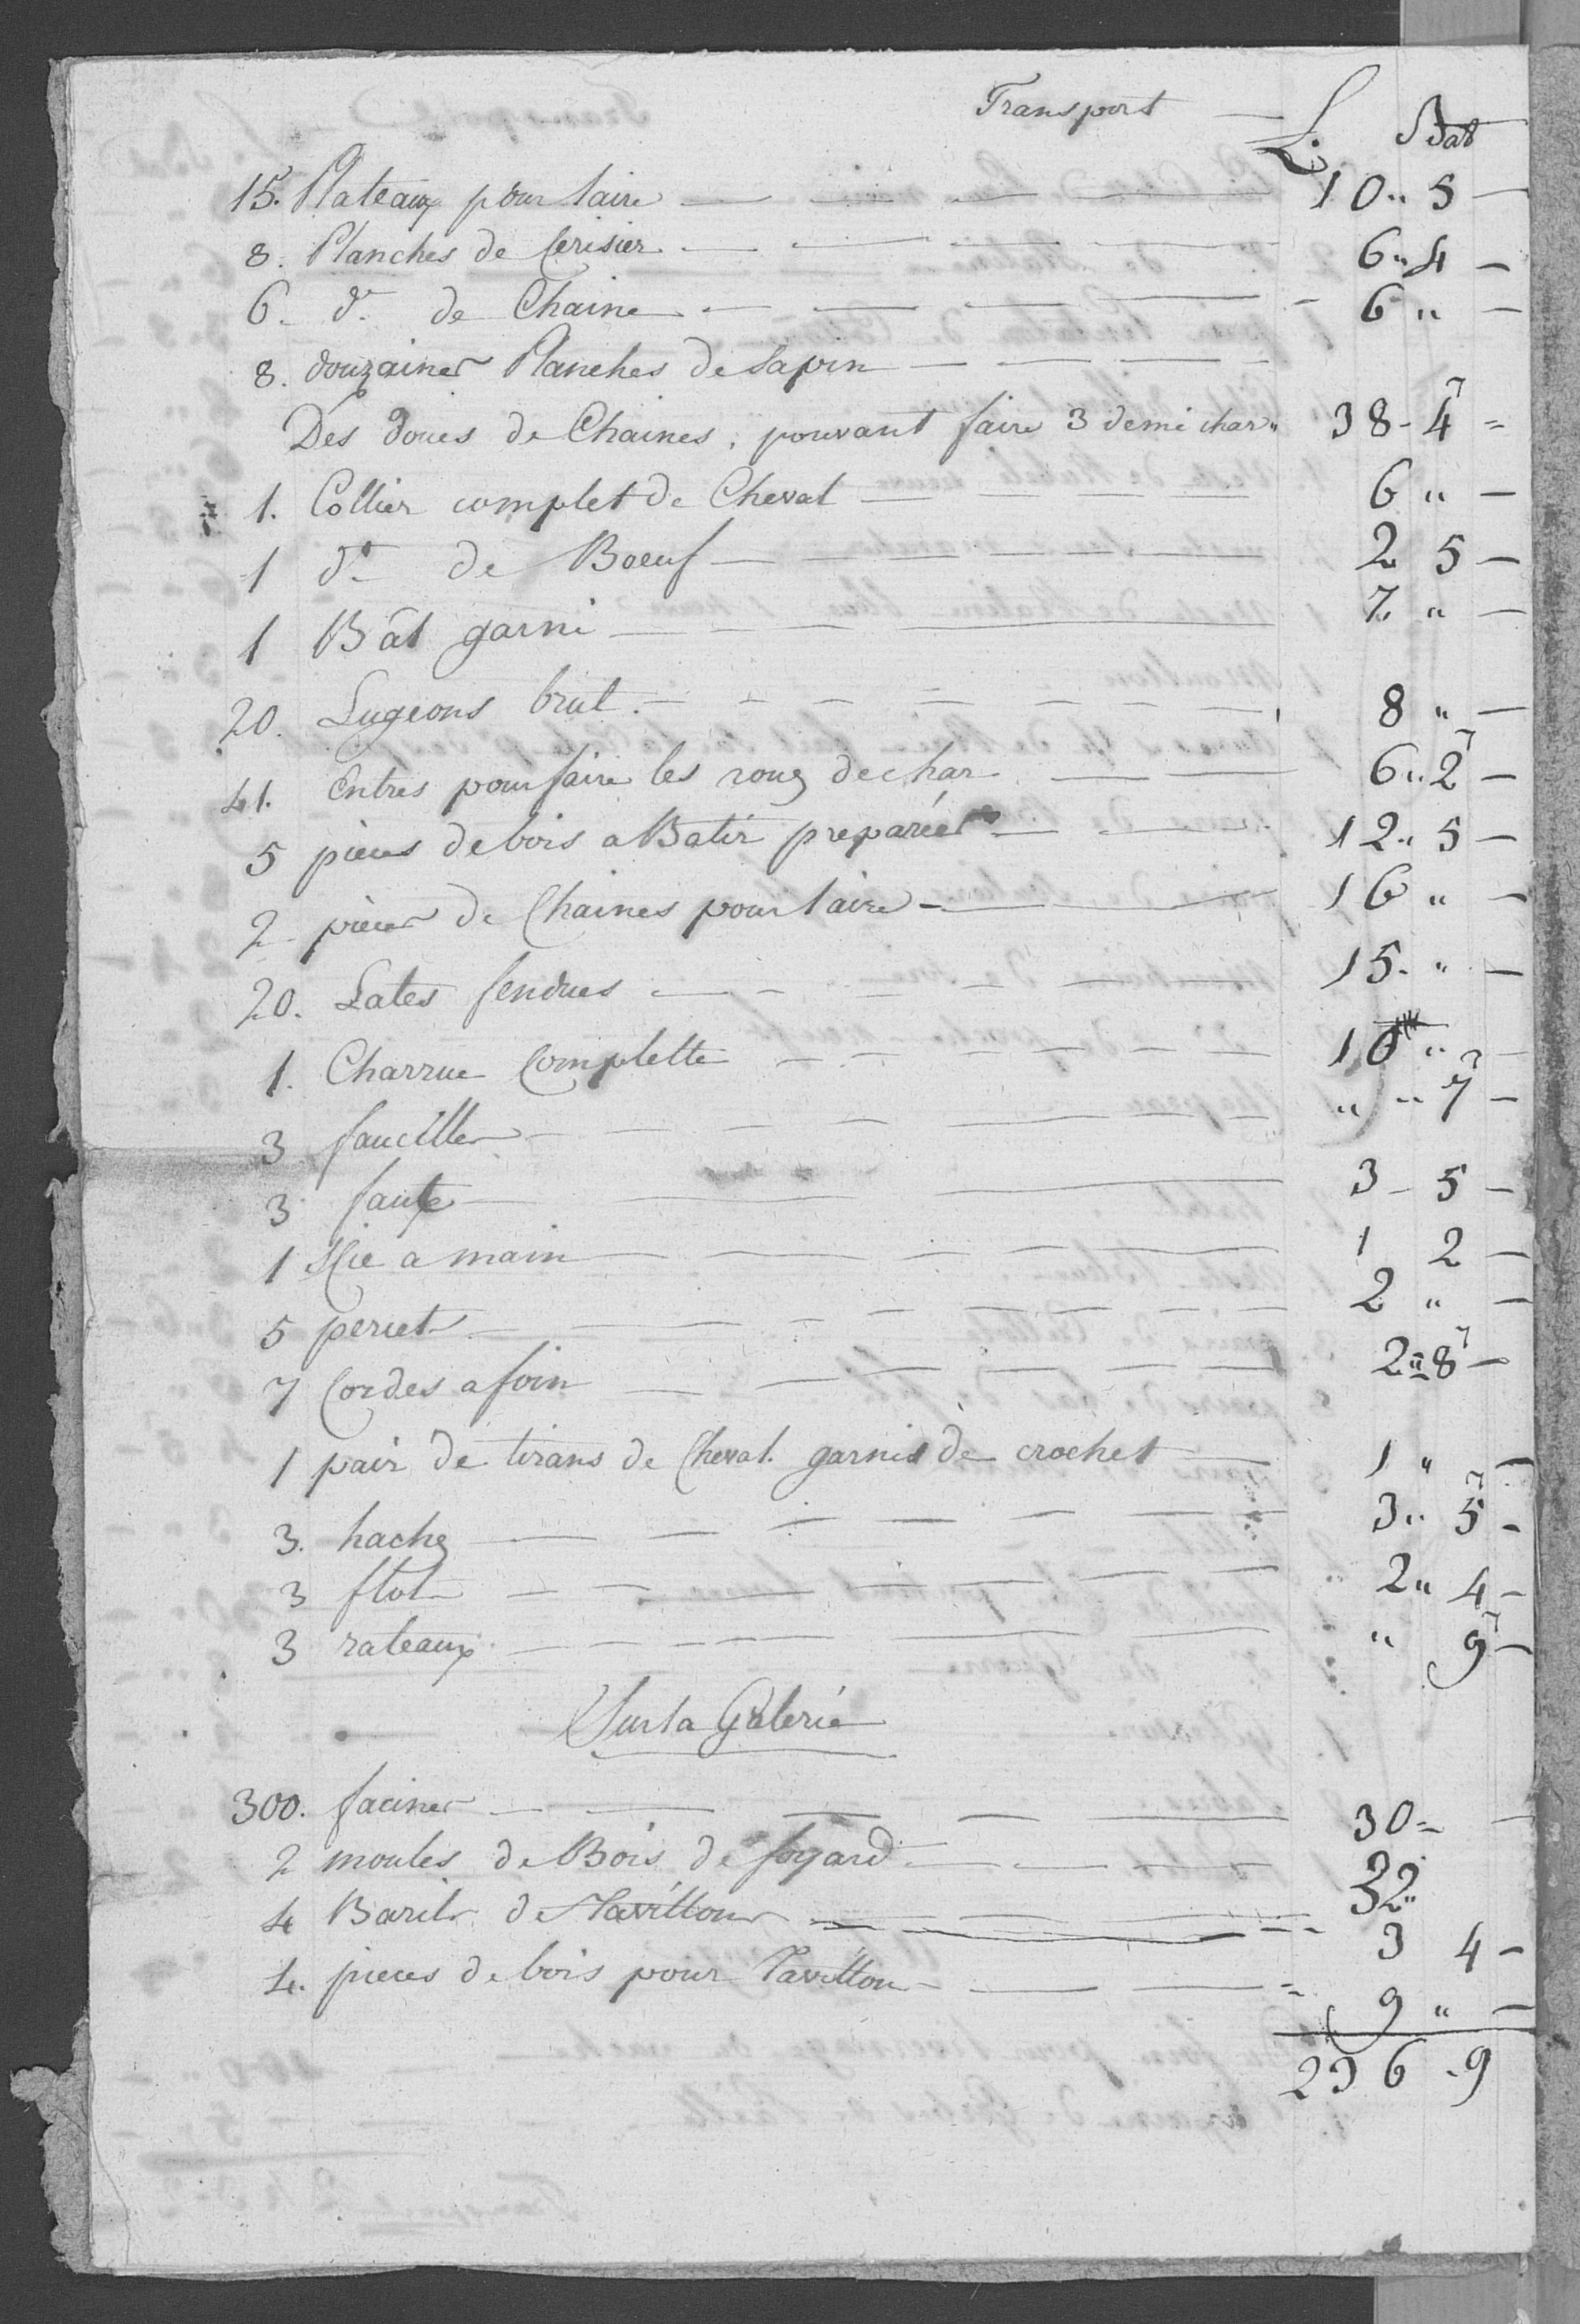 Transport
L. Bat
15. Plateaux pour l'aire 10 " 5
8. Planches de Cerisier 6 " 4
6. d.° de Chaine 6 "
8. douzaines Planches de Sapin
Des Doues de Chaines, pouvant faire 3 demi char " 38 - 4
1. Collier complet de Cheval 6 "
1 d.° de Boeuf 2 5
1 Bât garni 7 "
20. Lugeons brut 8 "
41. Entres pour faire les roues de char 6 " 2
5 pieces de bois a Batir preparées 12 " 5
2 pieces de Chaines pour l'aire 16 "
20. Lates fendues 15 "
1. Charrue Complette 10 "
3 faucilles " " 7
3 faulx 3 - 5
1 Scie a main 1 2
5 percets 2 "
7 Cordes a foin 2 " 8
1 pair de tirans de Cheval. garnis de crochet 1 "
3. haches 3 " 5
3 flots 2 " 4
3 rateaux " 9
Sur la Galerie
300. facines 30
2 moules de Bois de foyard 32 "
4 Barils de Tavillons 3 4
4. pieces de bois pour Tavillon 9 "
236 . 9